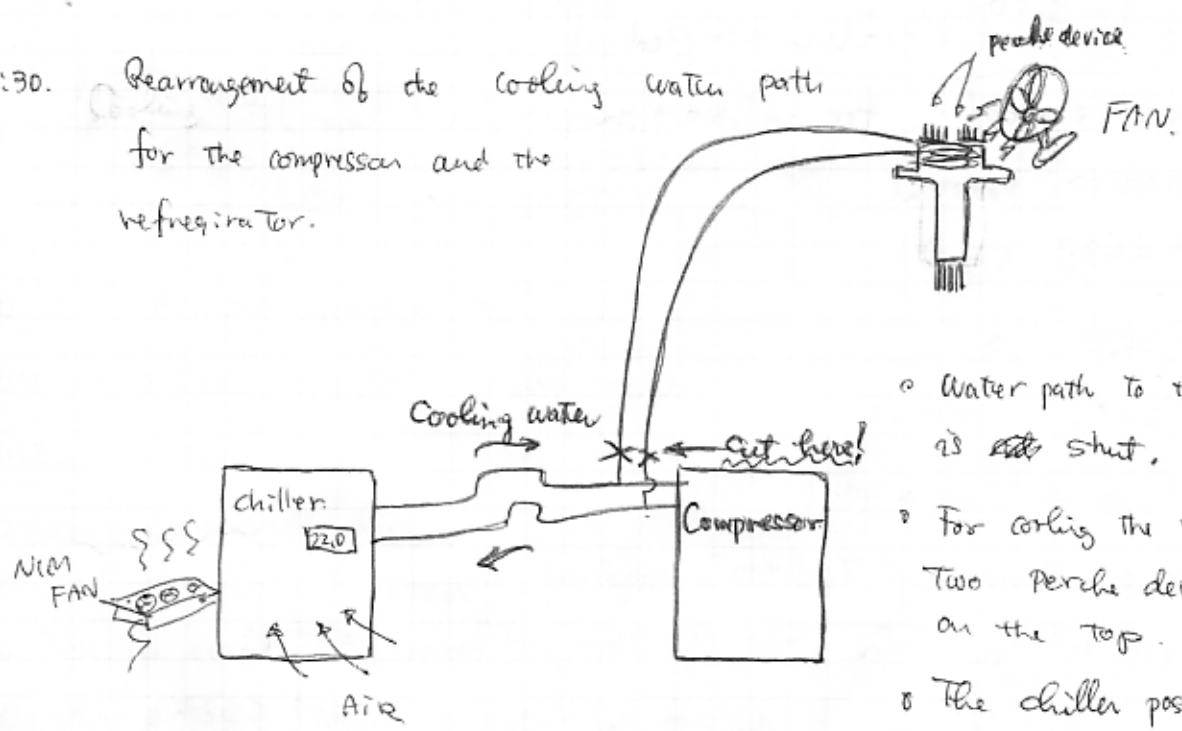 :30. Rearrangement of the cooling water path
for the compressor and the
refregirator.
perche device
FAN.
Cooling water
cut here!
chiller
22.0
Compressor
NIM
FAN
Air
° Water path to t
is shut.
° For corling the
Two Perche de
on the top.
° The chiller pos